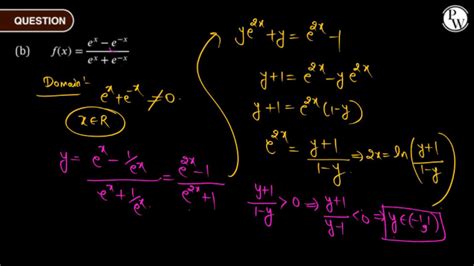 QUESTION
PW
(b) f(x) = (e^x − e^−x)/(e^x + e^−x)
Domain:-
e^x + e^−x ≠ 0.
x ∈ R
y = (e^x − 1/e^x)/(e^x + 1/e^x) = (e^2x − 1)/(e^2x + 1)
ye^2x + y = e^2x − 1
y + 1 = e^2x − ye^2x
y + 1 = e^2x (1 − y)
e^2x = (y + 1)/(1 − y) ⇒ 2x = ln((y + 1)/(1 − y))
(y + 1)/(1 − y) > 0 ⇒ (y + 1)/(y − 1) < 0 ⇒ y ∈ (−1, 1)